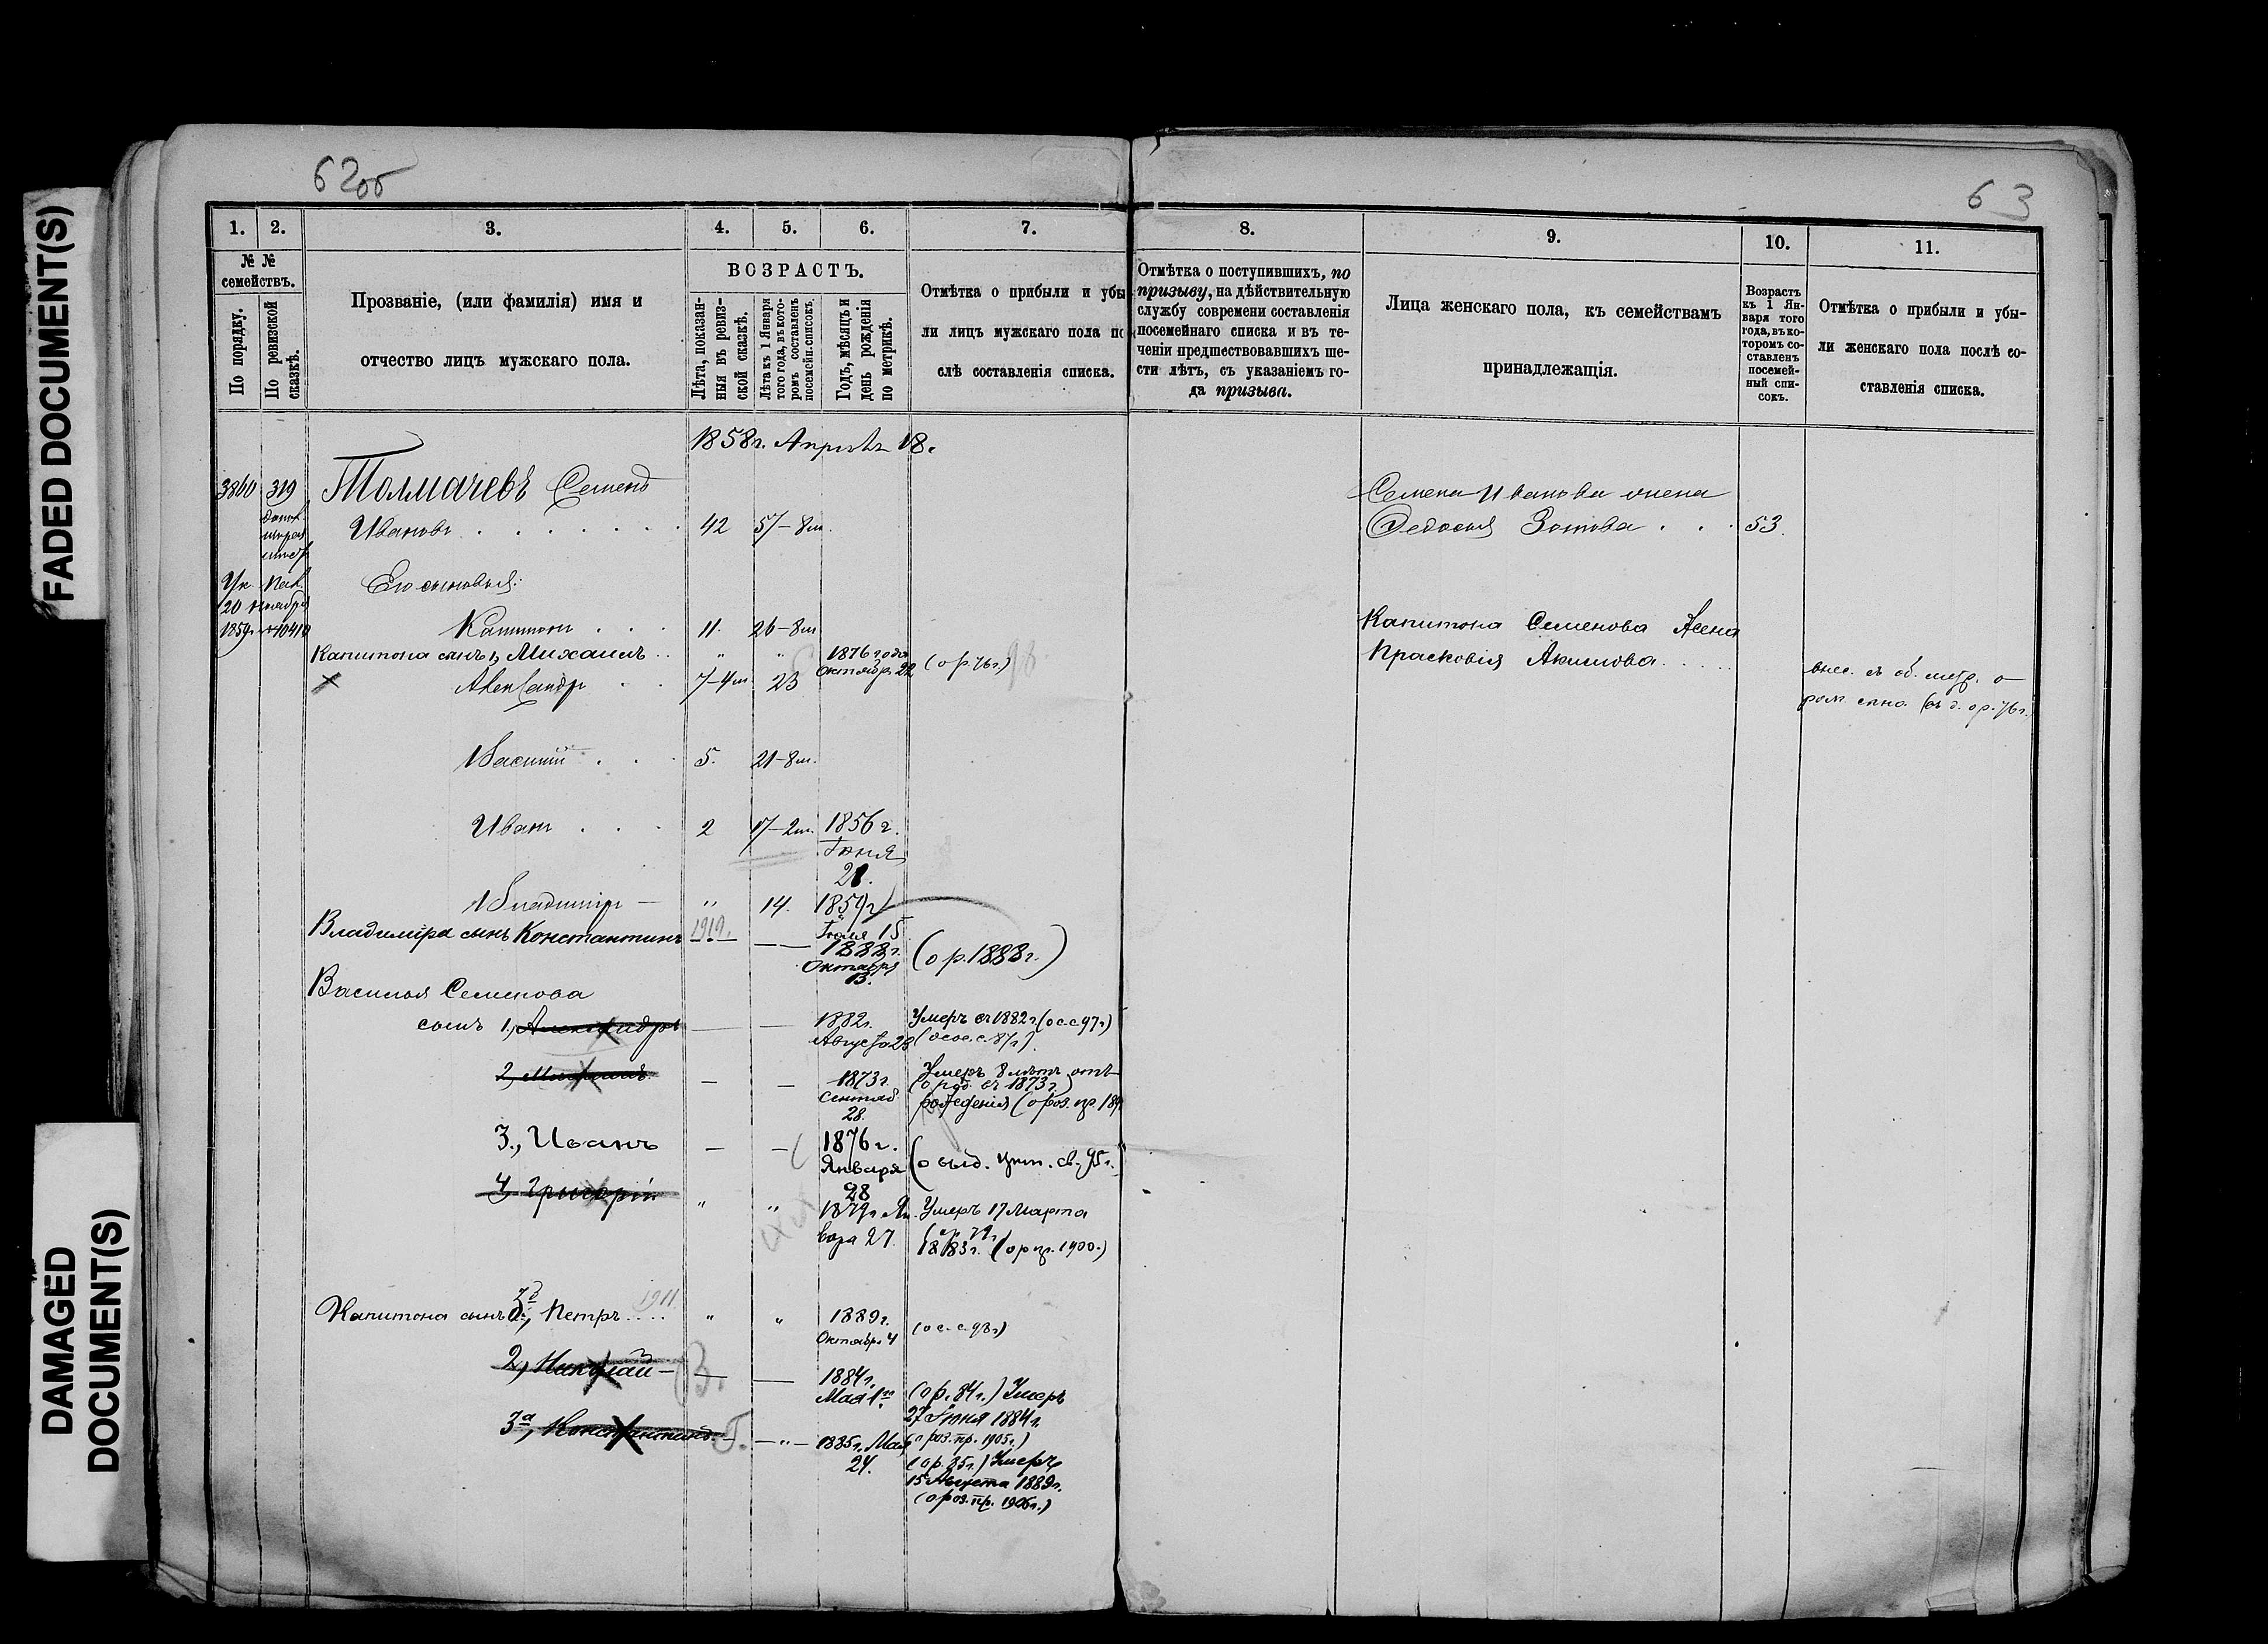 FADED DOCUMENT(S)
DAMAGED
DOCUMENT(S)
62об
63
1.
2.
3.
4.
5.
6.
7.
8.
9.
10.
11.
№ №
семействъ.
По порядку.
По ревизской
сказкѣ.
Прозваніе, (или фамилія) имя и
отчество лицъ мужскаго пола.
ВОЗРАСТЪ.
Лѣта, показан-
ныя въ ревиз-
ской сказкѣ.
Лѣта къ 1 Января
того года, въ кото-
ромъ составленъ
посемейн. списокъ.
Годъ, мѣсяцъ и
день рожденія
по метрикѣ.
Отмѣтка о прибыли и убы-
ли лицъ мужскаго пола по
слѣ составленія списка.
Отмѣтка о поступившихъ, по
призыву, на дѣйствительную
службу современи составленія
посемейнаго списка и въ те-
ченіи предшествовавшихъ ше-
сти лѣтъ, съ указаніемъ го-
да призыва.
Лица женскаго пола, къ семействамъ
принадлежащія.
Возрастъ
къ 1 Ян-
варя того
года, въ ко-
торомъ со-
ставленъ
посемей-
ный спи-
сокъ.
Отмѣтка о прибыли и убы-
ли женскаго пола послѣ со-
ставленія списка.
1858г. Апрѣль 18.
3860 319 Толмачевъ Семенъ
Ивановъ 42 57-8м.
Семена Иванова жена
Федосья Зотова 53.
Его сыновья:
1859г. №10410
Капитонъ 11. 26-8м
Капитона сынъ 1, Михаилъ " " 1876 года Октября 22 (о р. 76г.)
Александръ 7-4м 23
Капитона Семенова Жена
Прасковія Акимова
Василій 5. 21-8м.
Иванъ 2 17-2м. 1856г.
Іюня
28.
Владиміръ — " 14. 1859г
Іюля 15
Владиміра сынъ Константинъ 1919. — 1888г.
Октября
13.
(о р. 1888г.)
Василья Семенова
сынъ 1, Александръ — — 1882г.
Августа 28
Умеръ въ 1882г. (о с. с. 97г.)
2, — — 1873г.
Сентяб
28.
Умеръ 8 лѣтъ отъ
(о род. въ 1873г.)
рожденія
3., Иванъ — — 1876г.
Января
28
(о выд. 95г.)
4, Григорій " " 1879г. Ян
варя 27.
Умеръ 17 Марта
1883г. (о р пр. 1900.)
Капитона сынъ Петръ 1911 " " 1889г.
Октября 4
(о с. с. 98г)
2, Николай — — — 1884г.
Мая 1го
(о р. 84г.) Умеръ
27 Іюня 1884г.
(о роз. пр. 1905г.)
3й, Константинъ — " — 1885г. Мая
24.
(о р. 85г.) Умеръ
15 Августа 1889г.
(о роз. пр. 1906г.)